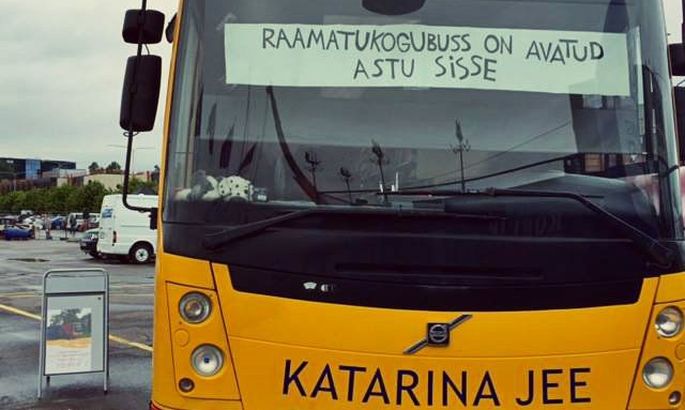 RAAMATUKOGUBUSS ON AVATUD
ASTU SISSE
KATARINA JEE